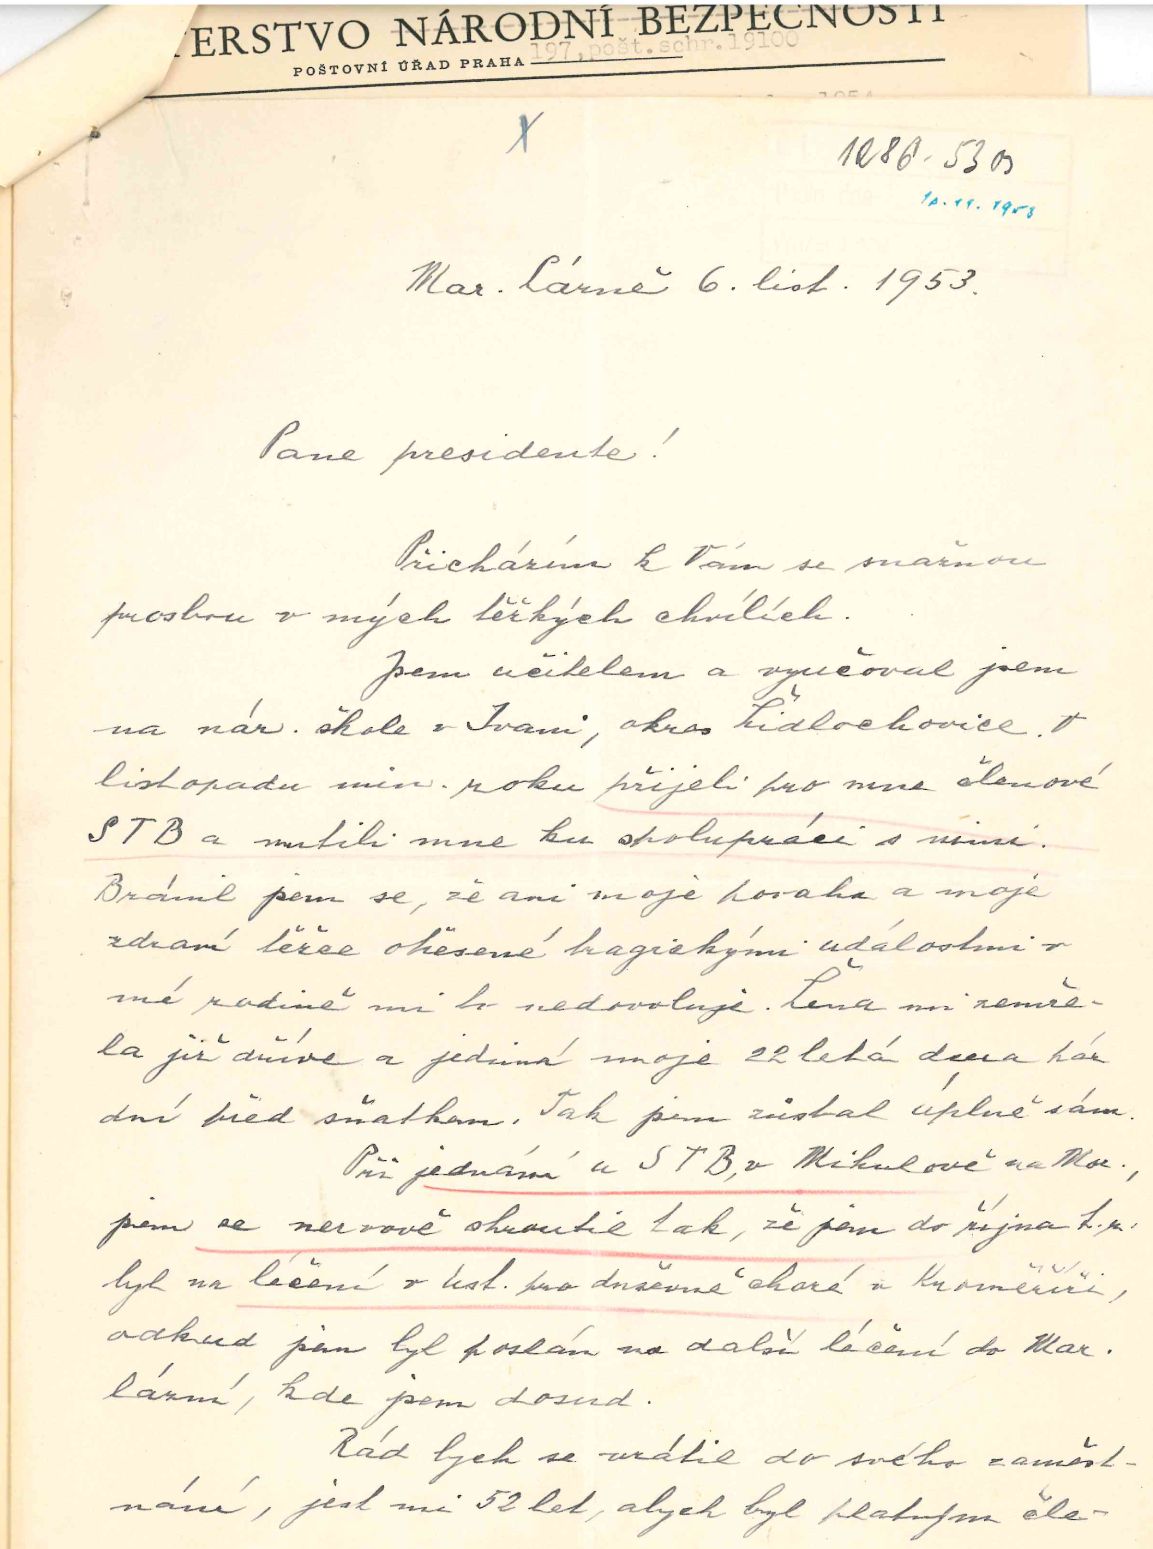 TERSTVO NÁRODNÍ BEZPEČNOSTI
POŠTOVNÍ ÚŘAD PRAHA 197, pošt. schr. 19100
1954
X
1953
Mar. Lázně 6. list. 1953.
Pane presidente!
Přicházím k Vám se snažnou
prosbou v mých těžkých chvílích.
Jsem učitelem a vyučoval jsem
na nár. škole v Ivani, okres Židlochovice. V
listopadu min. roku přijeli pro mne členové
STB a nutili mne ku spolupráci s nimi.
Bránil jsem se, že ani moje povaha a moje
zdraví těžce otřesené tragickými událostmi v
mé rodině mi to nedovoluje. Žena mi zemře-
la již dříve a jediná moje 22 letá dcera pár
dní před sňatkem. Tak jsem zůstal úplně sám.
Při jednání u STB, v Mikulově na Mor.,
jsem se nervově zhroutil tak, že jsem do října t.r.
byl na léčení v úst. pro duševně choré v Kroměříži,
odkud jsem byl poslán na další léčení do Mar.
lázní, kde jsem dosud.
Rád bych se vrátil do svého zaměst-
nání, jest mi 52 let, abych byl platným čle-